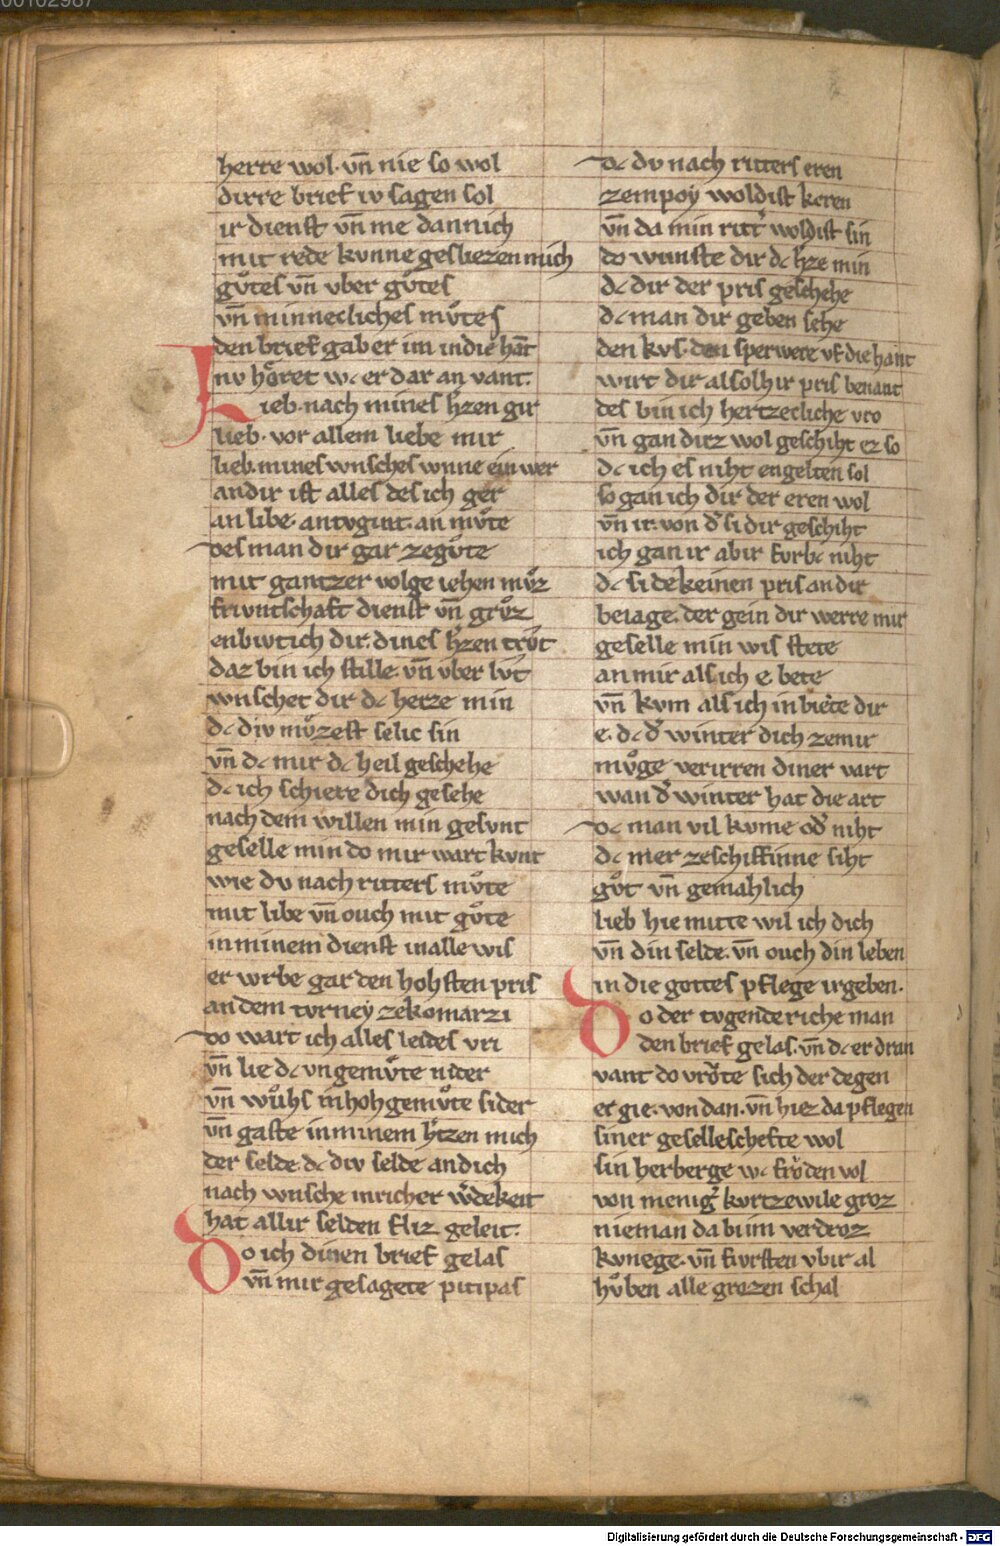 herre wol· vn̄ nie so wol
dirre brief iv sagen sol
ir dienst vn̄ me dannich
mit rede kvnne gesliezen mich
gůtes vn̄ vber gůtes
vn̄ minnecliches mv̊tes
den brief gab er im indie hāt
nv hǒret wc er dar an vant.
Lieb· nach mines h̓zen gir
lieb· vor allem liebe mir
lieb· mines wnsches wnne ein wer
andir ist alles des ich ger
an libe· antvgint· an mv̊te
des man dir gar zegv̊te
mit gantzer volge iehen mv̊z
frivntschaft dienst vn̄ grv̊z
enbivtich dir. dines h̓zen trv̊t
daz bin ich stille· vn̄ vber lvt
wnschet dir dc herze min
dc div mv̊zest selic sin
vn̄ dc mir dc heil geschehe
dc ich schiere dich gesehe
nach dem willen min gesvnt
geselle min do mir wart kvnt
wie dv nach ritters mv̊te
mit libe vn̄ ouch mit gv̊te
inminem dienst inalle wis
er wrbe gar den hohsten pris
andem tvrney zekomarzi
do wart ich alles leides vri
vn̄ lie dc vngemv̊te nider
vn̄ wv̊hs inhohgemv̊te sider
vn̄ gaste inminem h̓tzen mich
der selde· dc div selde andich
nach wnsche inricher w̓dekeit
hat allir selden fliz geleit·
Do ich dinen brief gelas
vn̄ mir gesagete pitipas
dc dv nach ritters eren
zempoy woldist keren
vn̄ da min ritt̓ woldist sin
do wunste dir dc h̓ze min
dc dir der pris geschehe
dc man dir geben sehe
den kvs· den sperwere vf die hant
wirt dir alsolhir pris benant
des bin ich hertzecliche vro
vn̄ gan dirz wol geschiht ez so
dc ich es niht engelten sol
so gan ich dir der eren wol
vn̄ ir· von d̓ si dir geschiht
ich gan ir abir fvrbc niht
dc si dekeinen pris an dir
beiage· der gein dir werre mir
geselle min wis stete
an mir als ich e bete
vn̄ kvm als ich inbiete dir
e· dc d̓ winter dich zemir
mv̊ge verirren diner vart
wan d̓ winter hat die art
dc man vil kvme od̓ niht
dc mer zeschiffinne siht
gv̊t vn̄ gemahlich
lieb hie mitte wil ich dich
vn̄ din selde· vn̄ ouch din leben
in die gottes pflege irgeben·
Do der tvgende riche man
den brief gelas· vn̄ dc er dran
vant do vrȏte sich der degen
er gie· von dan· vn̄ hiez da pflegen
siner geselleschefte wol
sin herberge wc frȏden vol
von menig̓ kvrtzewile groz
nieman da bi im verdroz
kvnege· vn̄ fvrsten vbir al
hv̊ben alle grozen schal
Digitalisierung gefördert durch die Deutsche Forschungsgemeinschaft - DFG